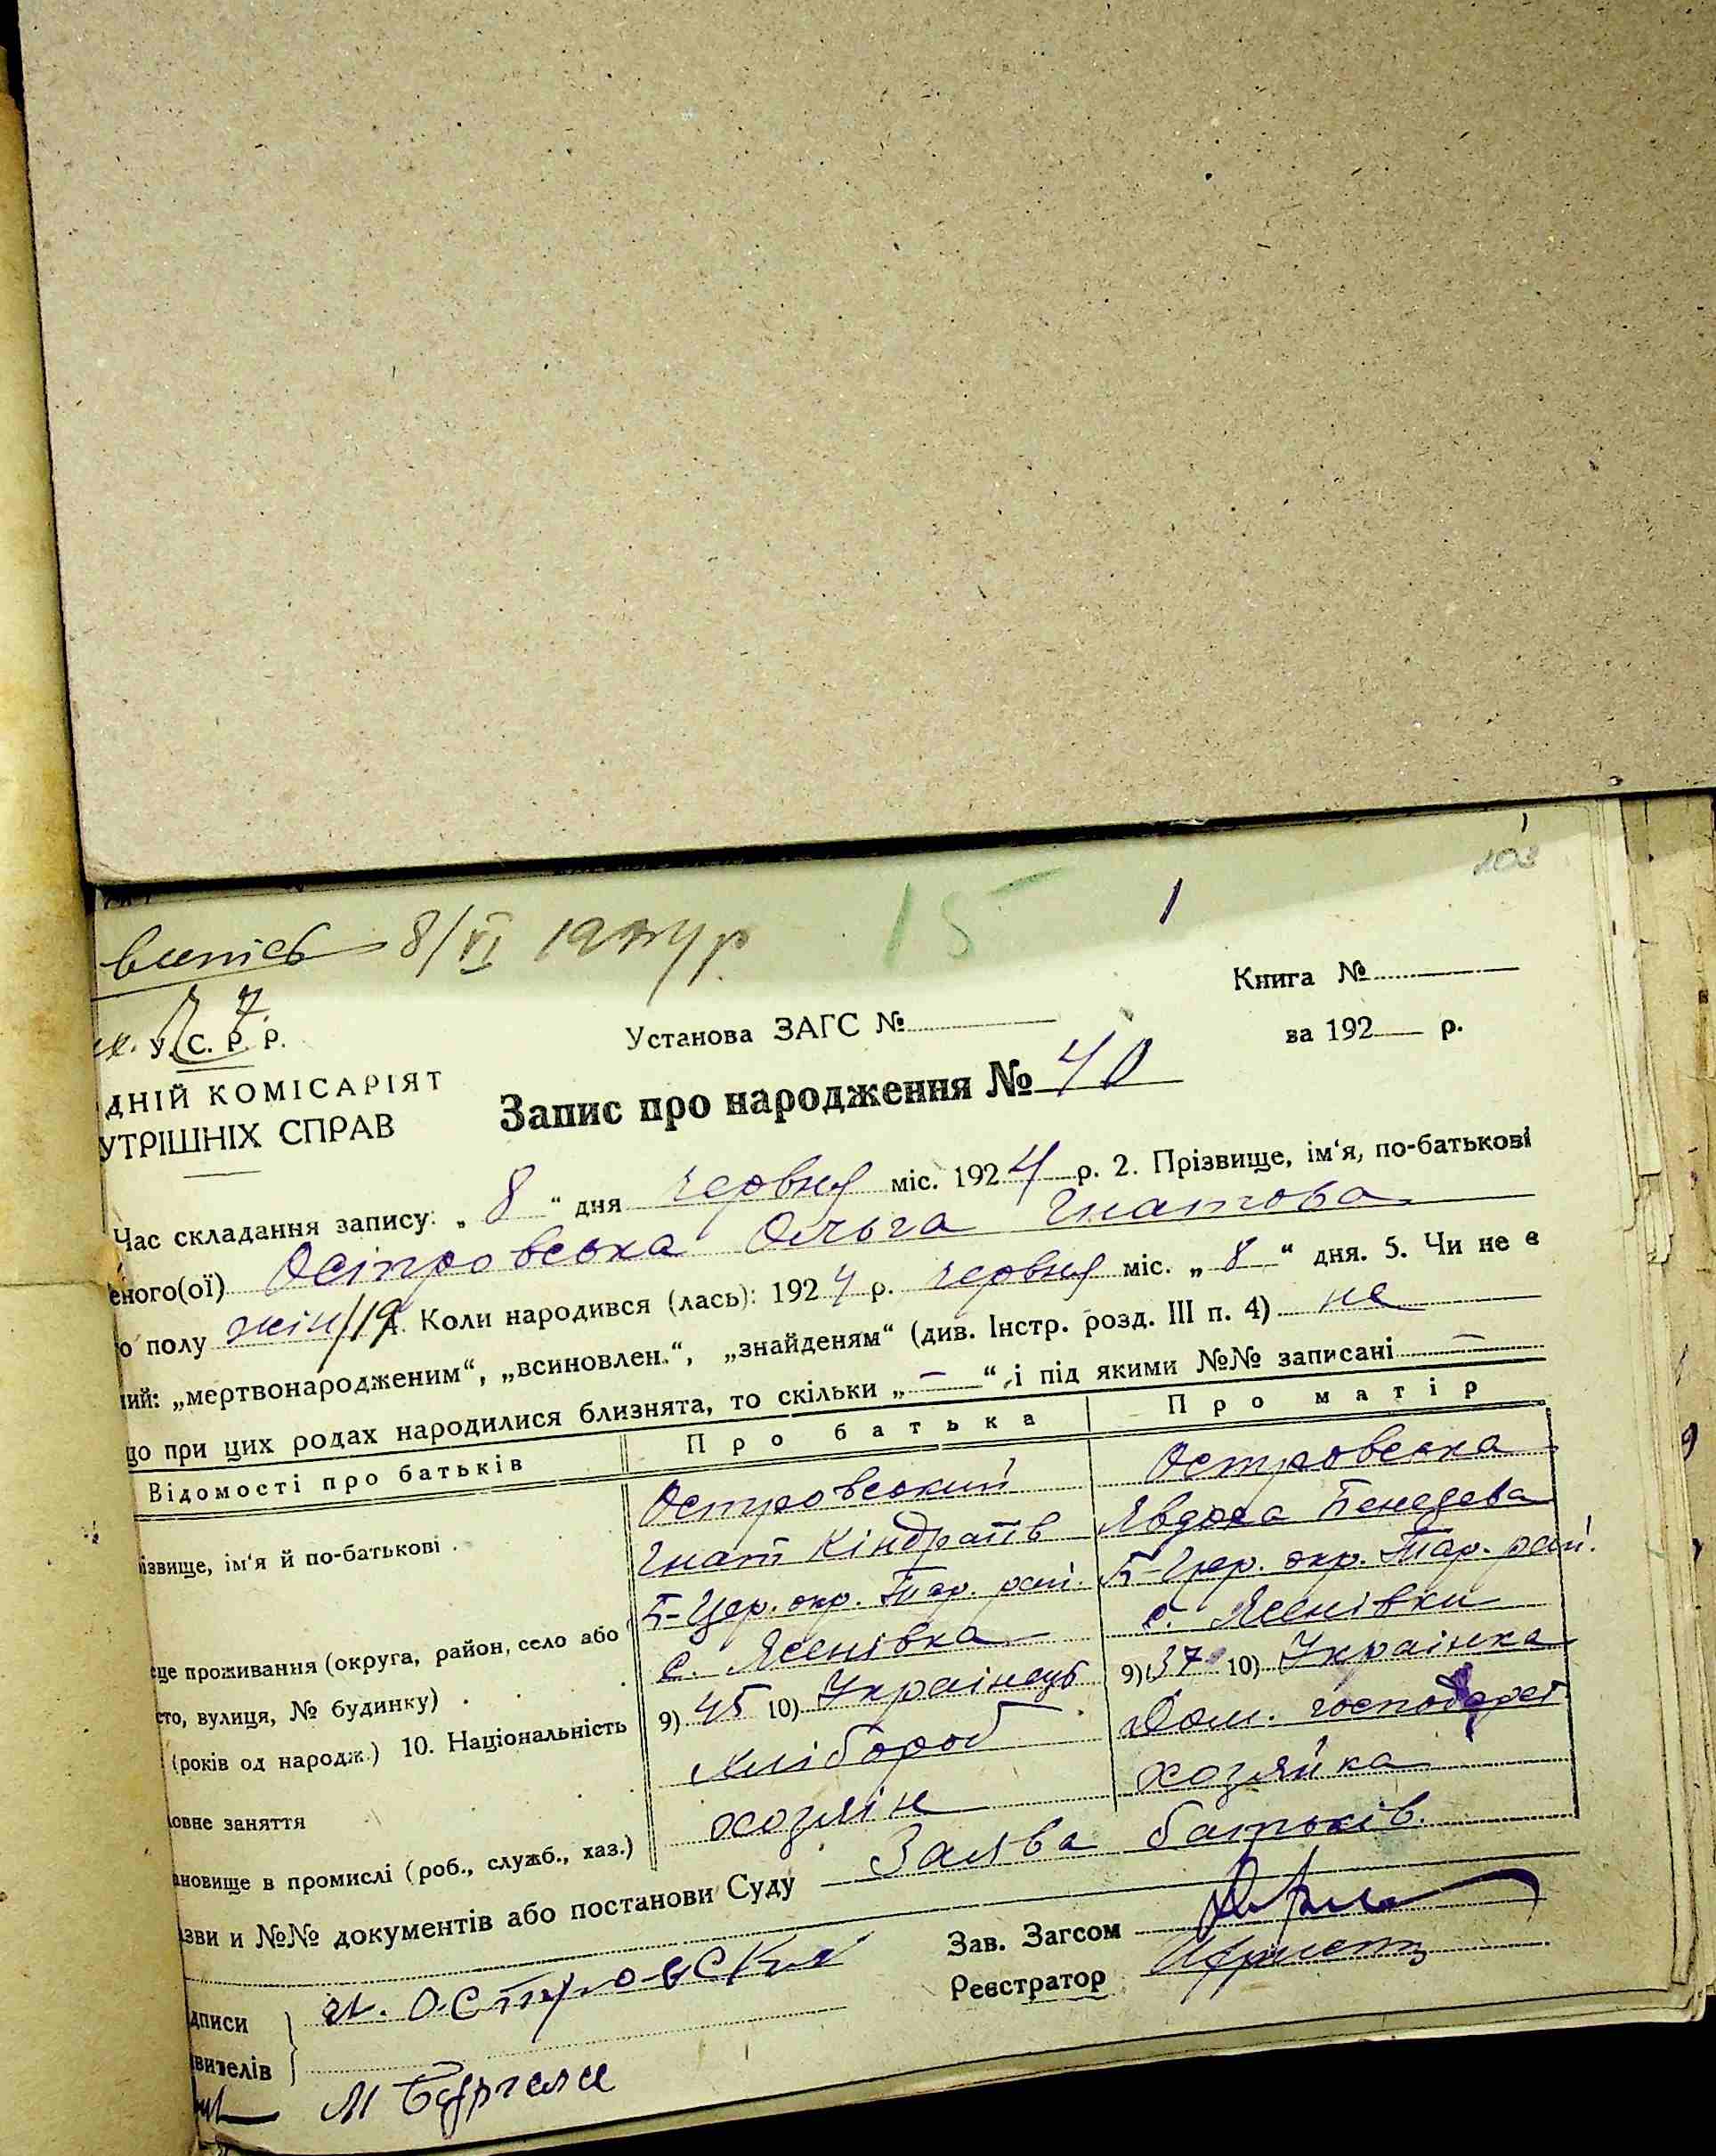 103
15
випісь 8/VI 1924 р
Книга №
У. С. Р. Р.
Установа ЗАГС №
за 192 р.
ДНІЙ КОМІСАРІЯТ
УТРІШНІХ СПРАВ
Запис про народження № 40
Час складання запису: „ 8 “ дня червня міс. 1924 р. 2. Прізвище, ім‘я, по-батькові
еного(ої) Осіпровська Ольга Гнатова
о полу жін 4. Коли народився (лась): 1924 р. червня міс. „ 8 “ дня. 5. Чи не є
ий: „мертвонародженим“, „всиновлен.“, „знайденям“ (див. Інстр. розд. III п. 4) не
що при цих родах народилися близнята, то скільки „ — “, і під якими №№ записані —
Відомості про батьків Про батька Про матір
Островський Островська
ізвище, ім‘я й по-батькові . Гнат Кіндратів Явдоха
Б-Цер. окр. Тар. рай. Б-Цер. окр. Тар. рай.
сце проживання (округа, район, село або с. Ясенівка с. Ясенівки
сто, вулиця, № будинку) . . .
(років од народж.) 10. Національність 9) 45 10) Українець 9) 37 10) Українка
Хлібороб Дом. господарст
овне заняття
хозяін хозяйка
ановище в промислі (роб., служб., хаз.)
азви и №№ документів або постанови Суду Заява батьків.
Зав. Загсом
Реєстратор
дписи
явителів
Островский
М